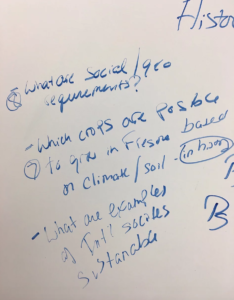 Histo
⑧ What are social/geo
requirements?
- Which crops are possible
⑦ to grow in Fresno based
on climate/soil - in hom
- What are examples
of Int'l societies
sustainable
B